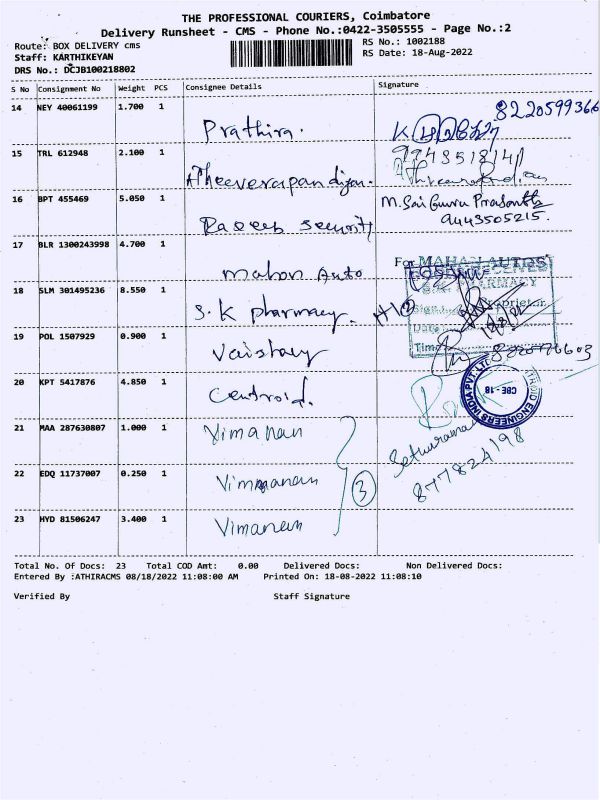 THE PROFESSIONAL COURIERS, Coimbatore
Delivery Runsheet - CMS - Phone No.:0422-3505555 - Page No.:2
Route: BOX DELIVERY cms
RS No.: 1002188
Staff: KARTHIKEYAN
RS Date: 18-Aug-2022
DRS No.: DCJB100218802
S No Consignment No Weight PCS Consignee Details Signature
14 NEY 40061199 1.700 1 Prathira. 8220599366
15 TRL 612948 2.100 1 ATheeverapandijan.
16 BPT 455469 5.050 1 Raseeb security M. Sai Guru Prasanth
9443505215.
17 BLR 1300243998 4.700 1 mahan Auto For MAHAN AUTOS
18 SLM 301495236 8.550 1 S.K pharmacy. PHARMACY
Proprietor
Date
19 POL 1507929 0.900 1 Vaistary Time
20 KPT 5417876 4.850 1 Centroid. CENTROID ENGINEERS INDIA PVT LTD
CBE - 18
21 MAA 287630807 1.000 1 Vimanan Sethuraman
22 EDQ 11737007 0.250 1 Vimmanan 3 877824198
23 HYD 81506247 3.400 1 Vimanan
Total No. Of Docs: 23 Total COD Amt: 0.00 Delivered Docs: Non Delivered Docs:
Entered By :ATHIRACMS 08/18/2022 11:08:00 AM Printed On: 18-08-2022 11:08:10
Verified By Staff Signature